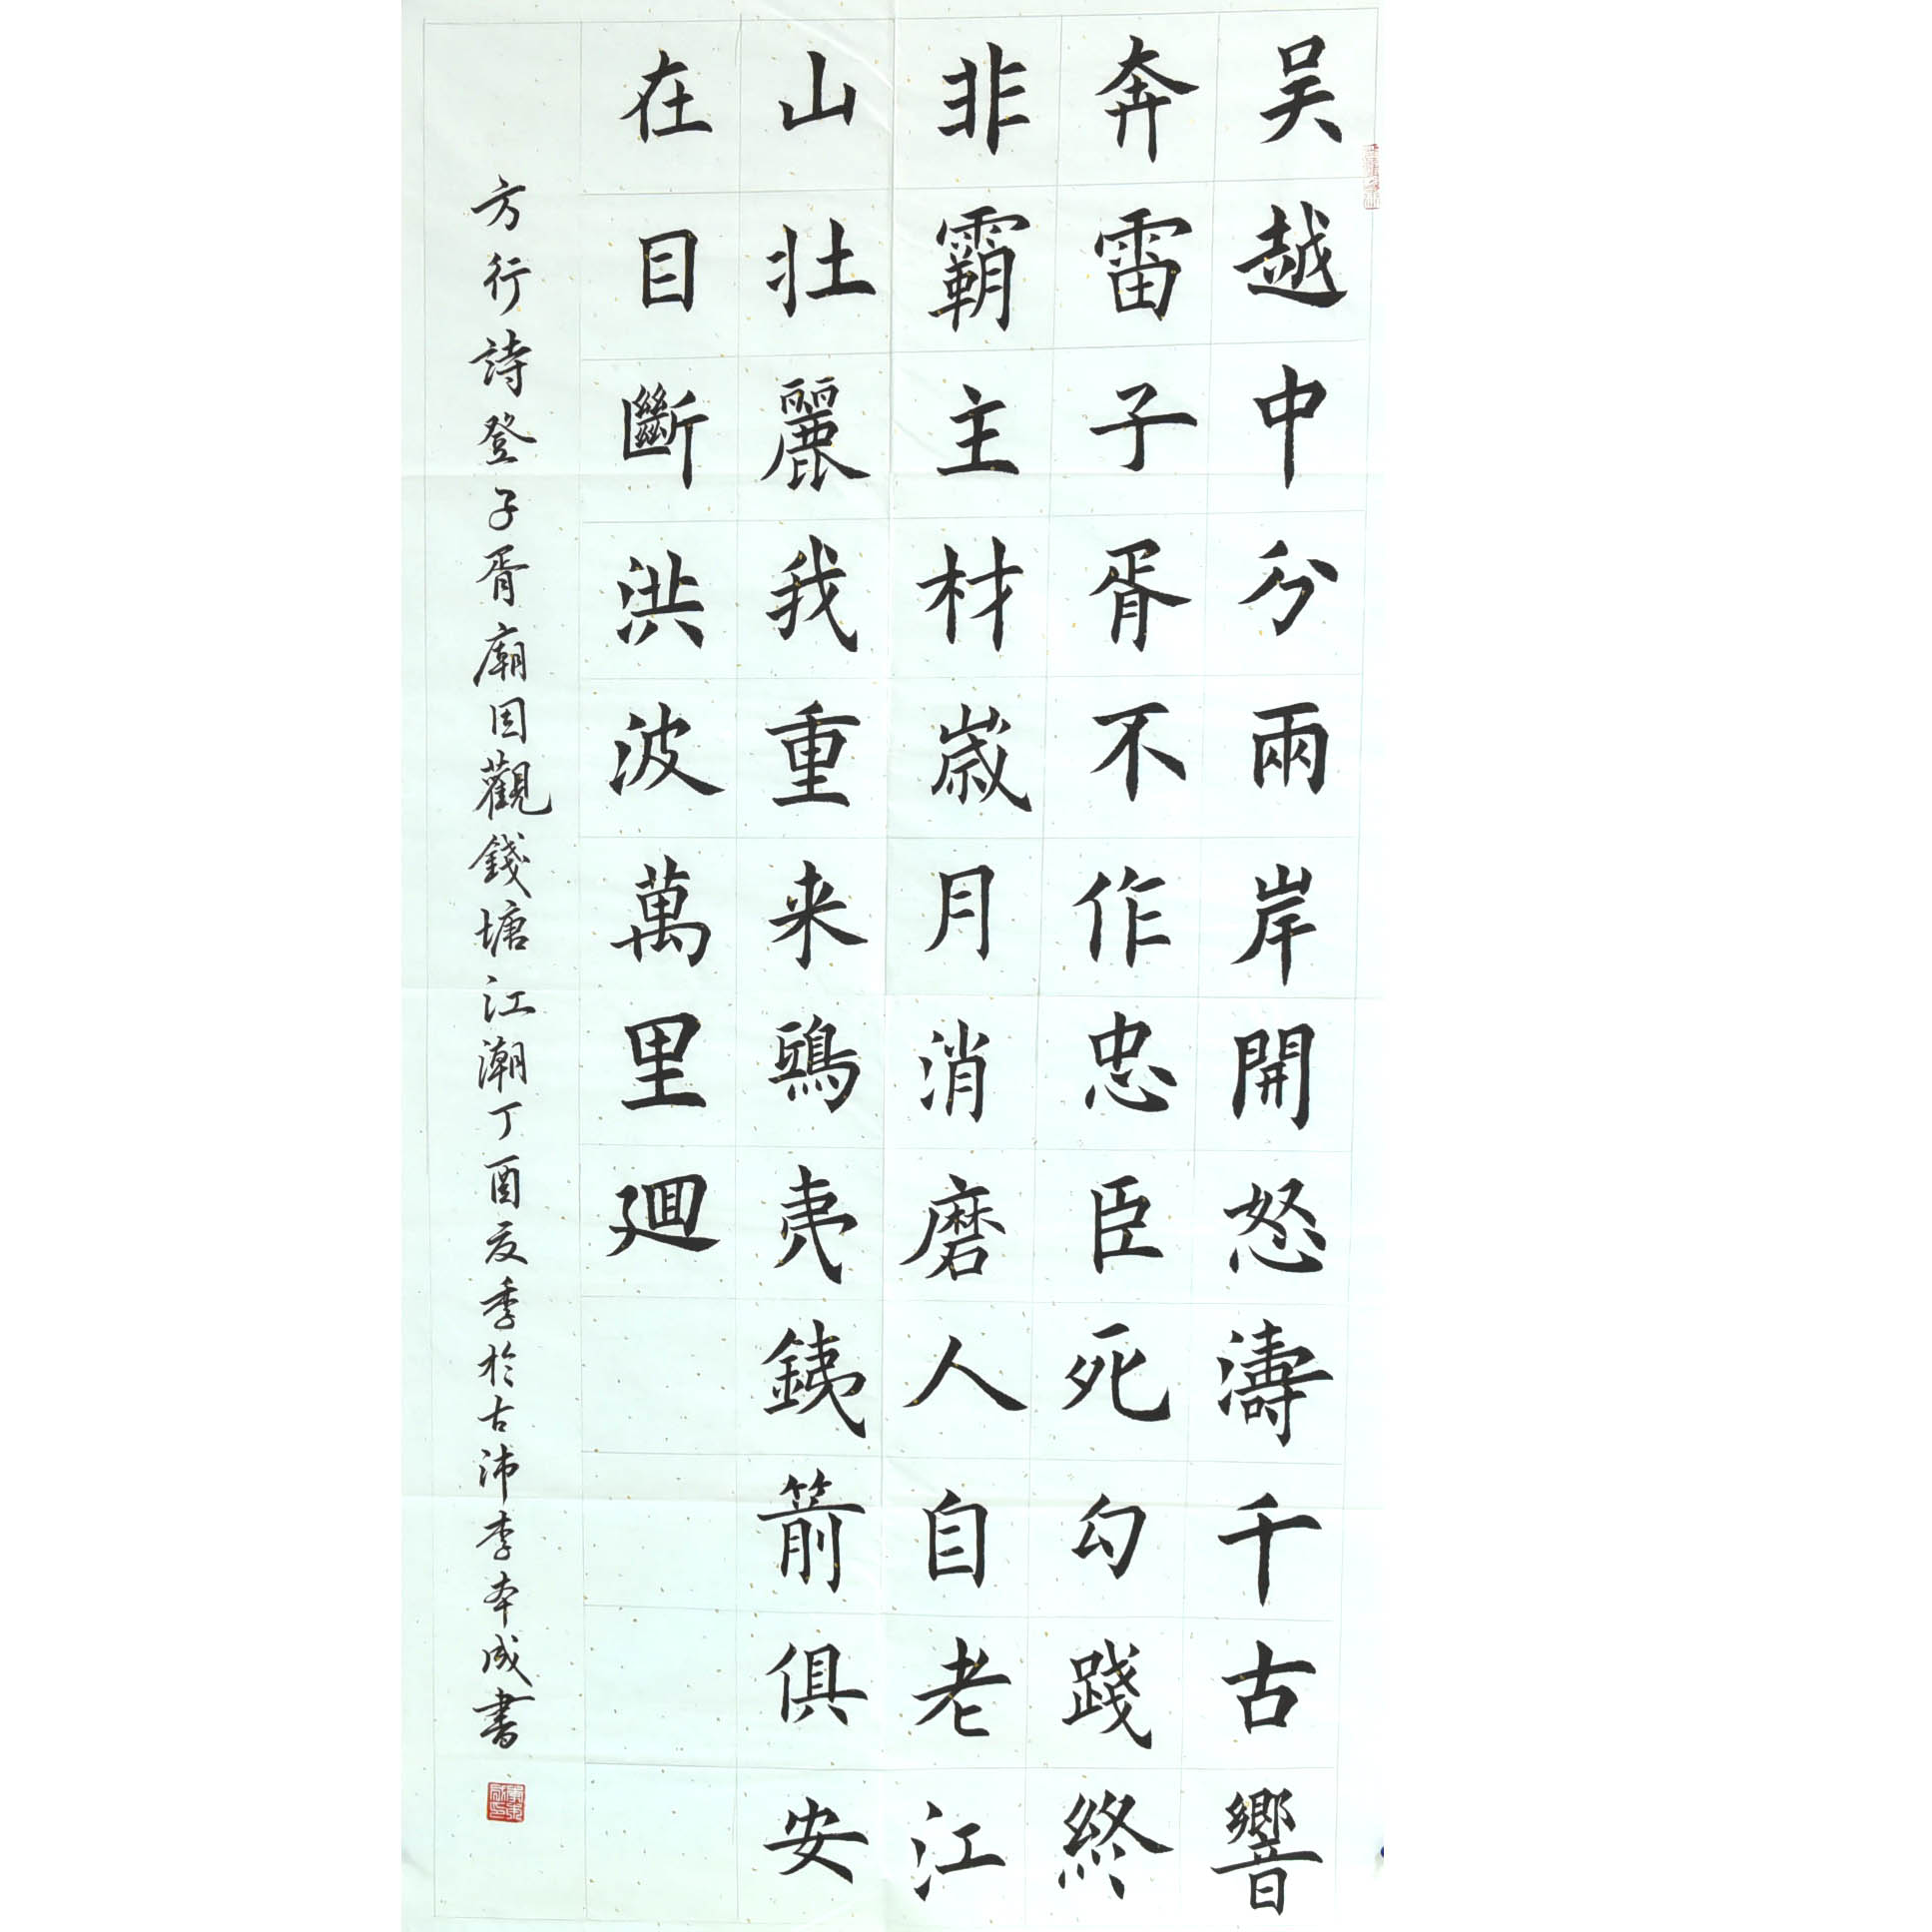 吳越中分兩岸開怒濤千古響
奔雷子胥不作忠臣死勾踐終
非霸主材歲月消磨人自老江
山壯麗我重来鴟夷銕箭俱安
在目斷洪波萬里迴
方行詩登子胥廟因觀錢塘江潮丁酉夏季於古沛李本成書